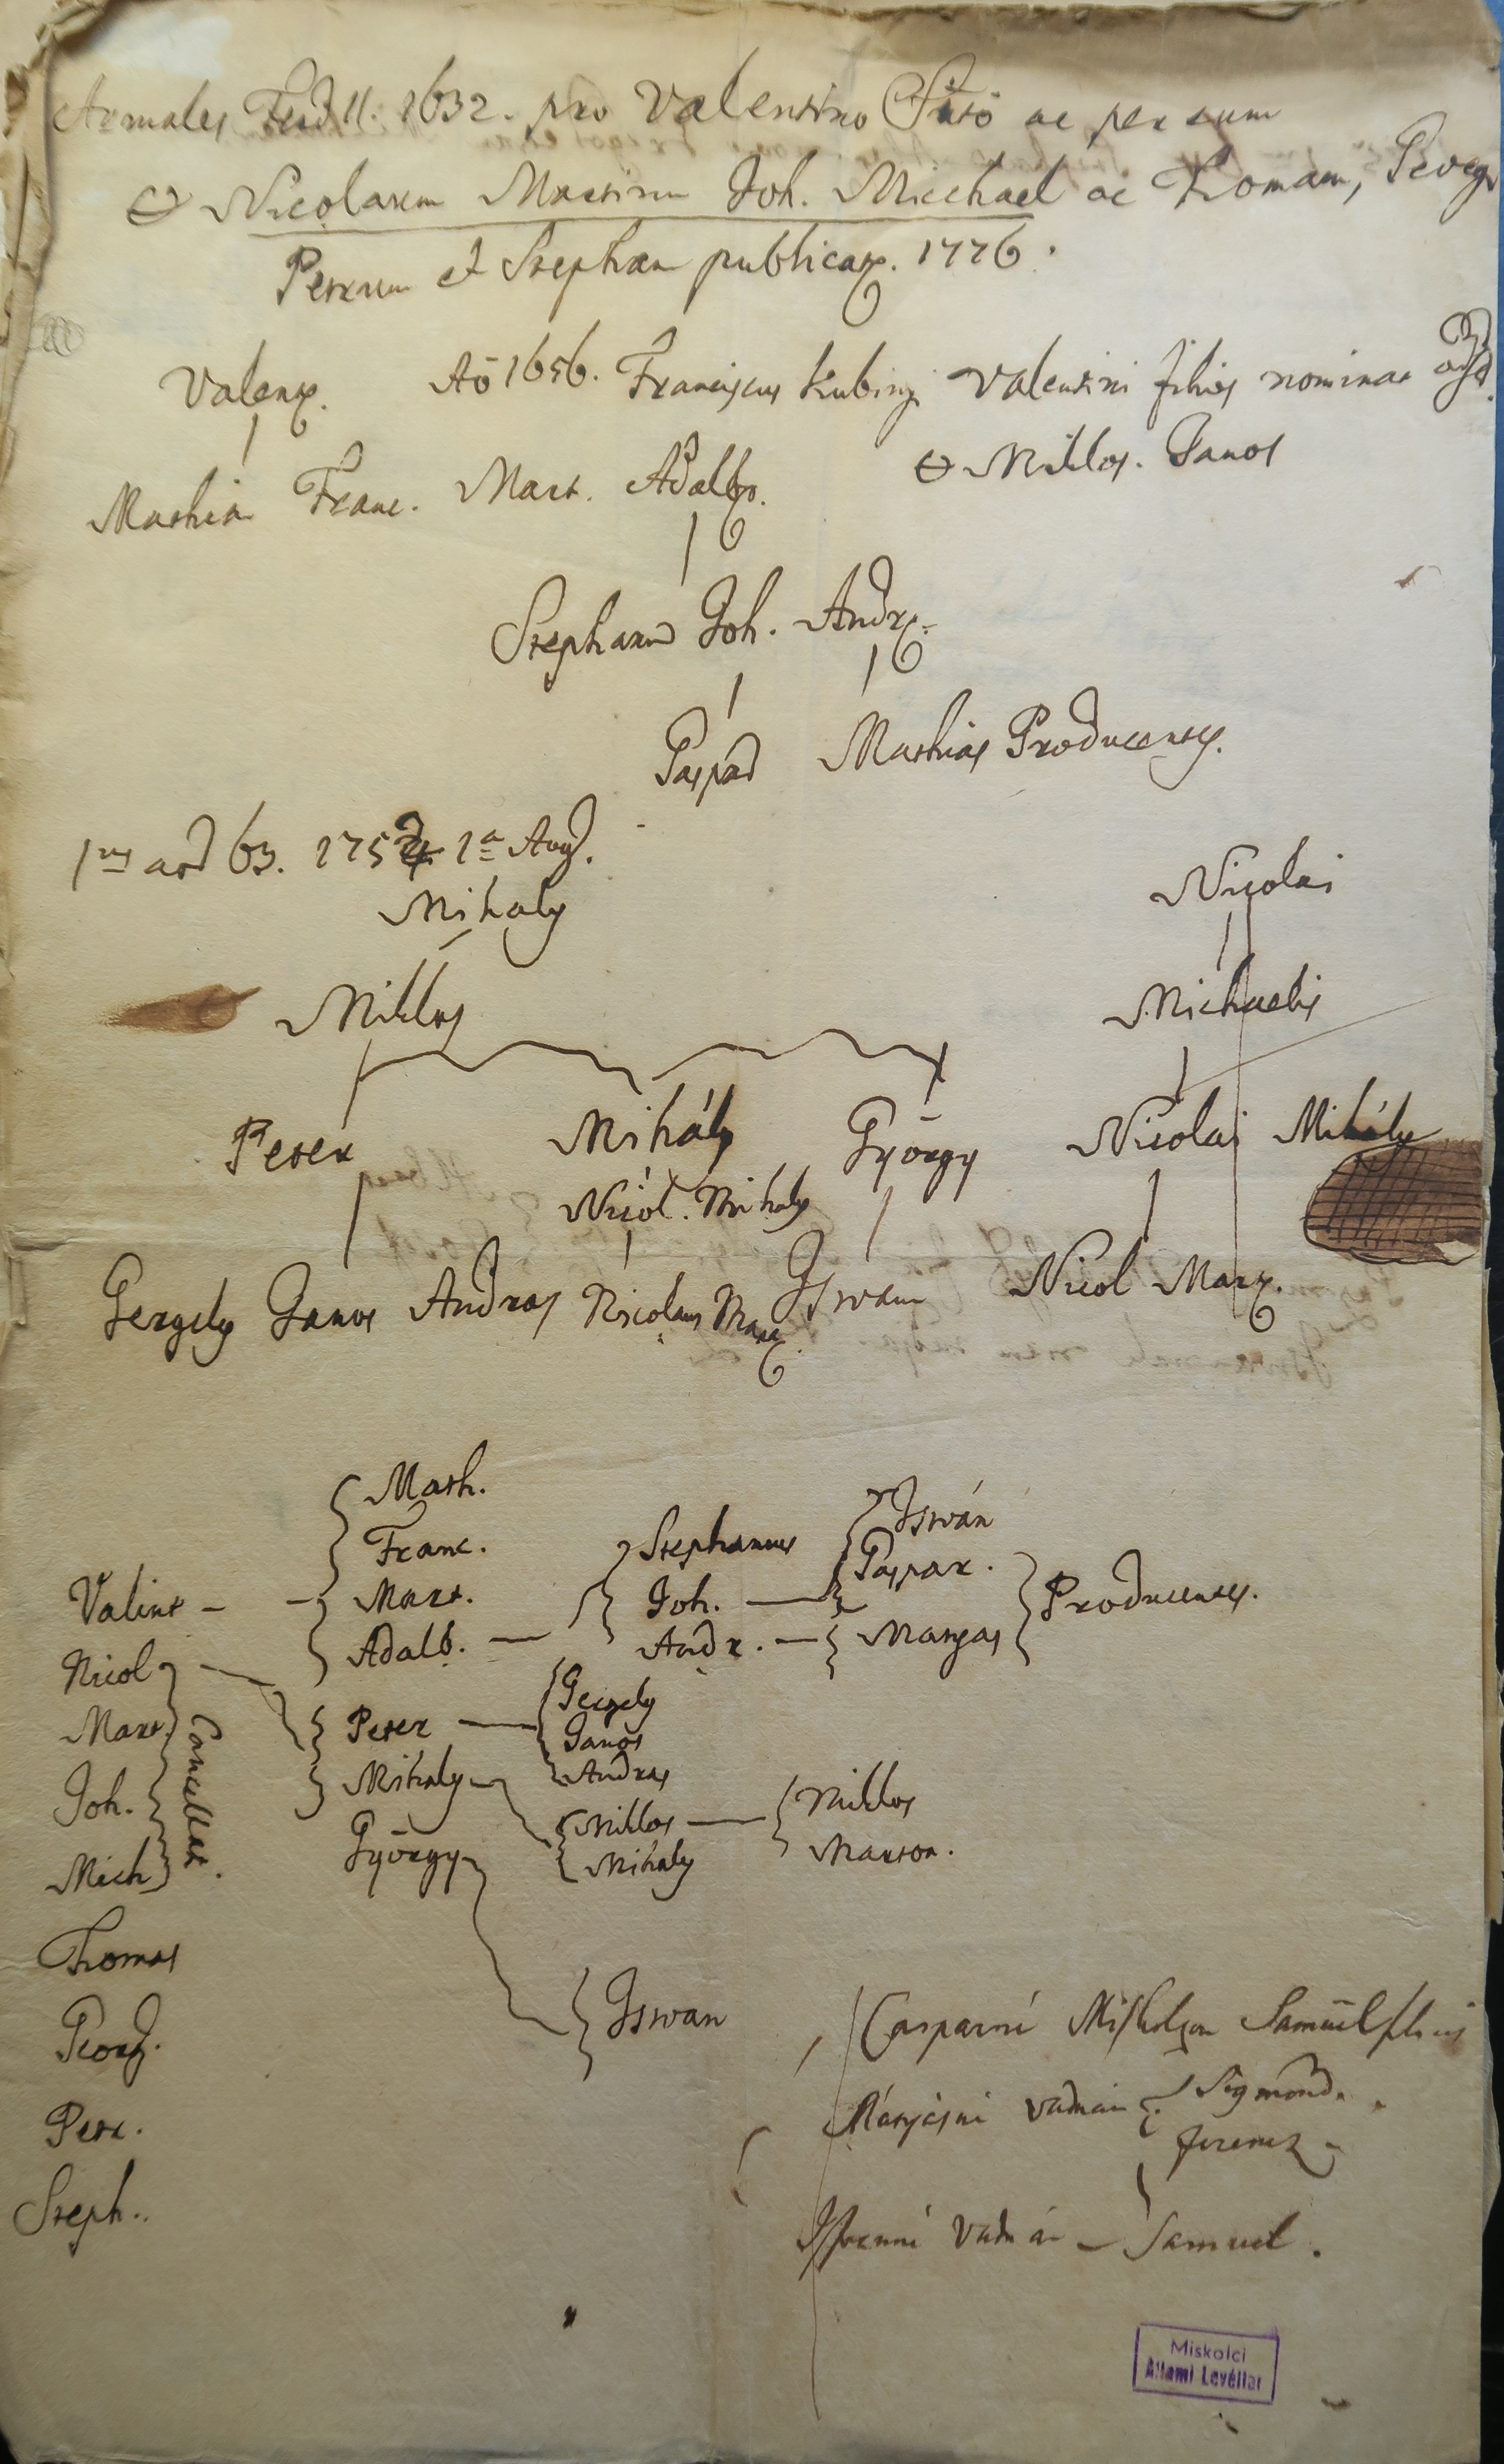 Armales Ferd II. 1632. pro Valentino Sütö ac per eum
Nicolaum Martinu Joh. Michael ac Thomam, Georg
Petrum et Stephan publicat. 1776.
Valent. Aō 1656. Franciscus Kubinyi Valentini filios nominat
Mathia Franc. Mart. Adalb. Miklos. Janos
Stephanus Joh. Andr.
Gaspar Mathias Producentes.
63. 175 1ª Aug.
Mihaly Nicolai
Miklos Michaelis
Peter Mihály György Nicolai Mihály
Nicol. Mihaly
Gergely Janos Andras Nicolaus Mart. Istvan Nicol Mart.
Math.
Franc. Stephanus István
Valint - Mart. Joh. Gaspar. Producentes.
Adalb. Andr. Matyas
Nicol
Mart. Peter Gergely
Janos
Andras
Joh. Mihaly
Miklos Miklos
Mich György Mihaly Marton.
Cancellat.
Thomas
Georg. Istvan
Petr.
Steph..
Casparni Samuel
Mátyásni Vadnai Sigmond.
ferencz
Vadnai - Samuel.
Miskolci
Állami Levéltár